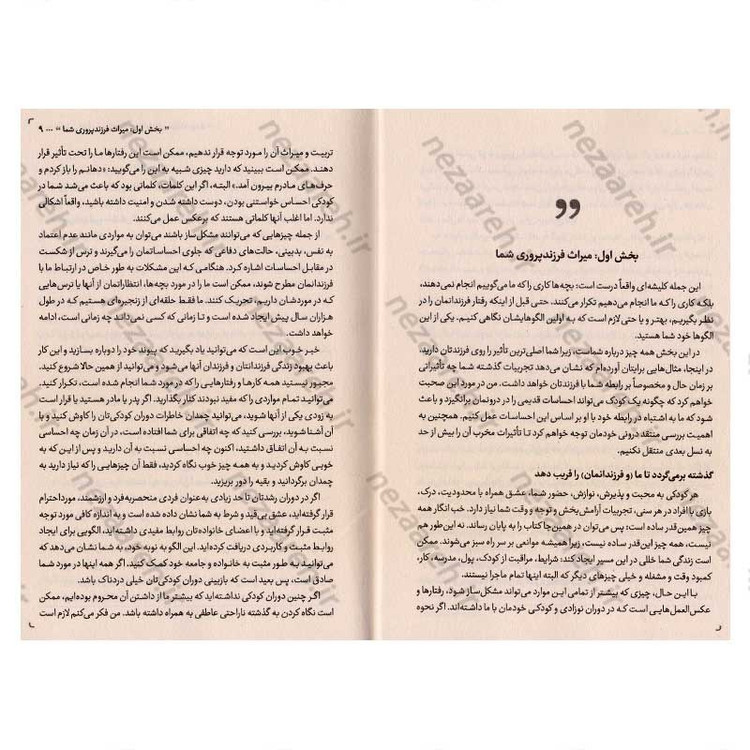 بخش اول: میراث فرزندپروری شما
این جمله کلیشه‌ای واقعاً درست است: بچه‌ها کاری را که ما می‌گوییم انجام نمی‌دهند،
بلکه کاری را که ما انجام می‌دهیم تکرار می‌کنند. حتی قبل از اینکه رفتار فرزندانمان را در
نظر بگیریم، بهتر و یا حتی لازم است که به اولین الگوهایشان نگاهی کنیم. یکی از این
الگوها خود شما هستید.
در این بخش همه چیز درباره شماست، زیرا شما اصلی‌ترین تأثیر را روی فرزندتان دارید.
در اینجا، مثال‌هایی برایتان آورده‌ام که نشان می‌دهد تجربیات گذشته شما چه تأثیراتی
بر زمان حال و مخصوصاً بر رابطه شما با فرزندتان خواهد داشت. من در مورد این صحبت
خواهم کرد که چگونه یک کودک می‌تواند احساسات قدیمی را در درونمان برانگیزد و باعث
شود که ما به اشتباه در رابطه خود با او بر اساس این احساسات عمل کنیم. همچنین به
اهمیت بررسی منتقد درونی خودمان توجه خواهم کرد تا تأثیرات مخرب آن را بیش از حد
به نسل بعدی منتقل نکنیم.
گذشته برمی‌گردد تا ما (و فرزندانمان) را فریب دهد
هر کودکی به محبت و پذیرش، نوازش، حضور شما، عشق همراه با محدودیت، درک،
بازی با افراد در هر سنی، تجربیات آرامش‌بخش و توجه و وقت شما نیاز دارد. خب انگار همه
چیز همین‌قدر ساده است: پس می‌توان در همین‌جا کتاب را به پایان رساند. نه این‌طور هم
نیست، همه چیز این‌قدر ساده نیست، زیرا همیشه موانعی بر سر راه سبز می‌شوند. ممکن
است زندگی شما خللی در این مسیر ایجاد کند: شرایط، مراقبت از کودک، پول، مدرسه، کار،
کمبود وقت و مشغله و خیلی چیزهای دیگر که البته اینها تمام ماجرا نیستند.
با این حال، چیزی که بیشتر از تمامی این موارد می‌تواند مشکل‌ساز شود، رفتارها و
عکس‌العمل‌هایی است که در دوران نوزادی و کودکی خودمان با ما داشته‌اند. اگر نحوه
” بخش اول: میراث فرزندپروری شما “ ... ۹
تربیت و میراث آن را مورد توجه قرار ندهیم، ممکن است این رفتارها ما را تحت تأثیر قرار
دهند. ممکن است ببینید که دارید چیزی شبیه به این را می‌گویید: «دهانم را باز کردم و
حرف‌های مادرم بیرون آمد.» البته، اگر این کلمات، کلماتی بود که باعث می‌شد شما در
کودکی احساس خواستنی بودن، دوست داشته شدن و امنیت داشته باشید، واقعاً اشکالی
ندارد. اما اغلب آنها کلماتی هستند که برعکس عمل می‌کنند.
از جمله چیزهایی که می‌توانند مشکل‌ساز باشند می‌توان به مواردی مانند عدم اعتماد
به نفس، بدبینی، حالت‌های دفاعی که جلوی احساساتمان را می‌گیرند و ترس از شکست
در مقابل احساسات اشاره کرد. هنگامی که این مشکلات به طور خاص در ارتباط ما با
فرزندانمان مطرح شوند، ممکن است ما را در مورد بچه‌ها، انتظاراتمان از آنها یا ترس‌هایی
که در موردشان داریم، تحریک کنند. ما فقط حلقه‌ای از زنجیره‌ای هستیم که در طول
هزاران سال پیش ایجاد شده است و تا زمانی که کسی نمی‌داند چه زمانی است، ادامه
خواهد داشت.
خبر خوب این است که می‌توانید یاد بگیرید که پیوند خود را دوباره بسازید و این کار
باعث بهبود زندگی فرزندانتان و فرزندان آنها می‌شود و می‌توانید از همین حالا شروع کنید.
مجبور نیستید همه کارها و رفتارهایی را که در مورد شما انجام شده است، تکرار کنید.
می‌توانید تمام مواردی را که مفید نبودند کنار بگذارید. اگر پدر یا مادر هستید یا قرار است
به زودی یکی از آنها شوید، می‌توانید چمدان خاطرات دوران کودکی‌تان را کاوش کنید و با
آن آشنا شوید، بررسی کنید که چه اتفاقی برای شما افتاده است، در آن زمان چه احساسی
نسبت به آن اتفاق داشتید، اکنون چه احساسی نسبت به آن دارید و پس از این که به
خوبی کاوش کردید و به همه چیز خوب نگاه کردید، فقط آن چیزهایی را که نیاز دارید به
چمدان برگردانید و بقیه را دور بریزید.
اگر در دوران رشدتان تا حد زیادی به‌عنوان فردی منحصربه‌فرد و ارزشمند، مورداحترام
قرار گرفته‌اید، عشق بی‌قید و شرط به شما نشان داده شده است و به اندازه کافی مورد توجه
مثبت قرار گرفته‌اید و با اعضای خانواده‌تان روابط مفیدی داشته‌اید، الگویی برای ایجاد
روابط مثبت و کاربردی دریافت کرده‌اید. این الگو به نوبه خود، به شما نشان می‌دهد که
می‌توانید به طور مثبت به خانواده و جامعه خود کمک کنید. اگر همه اینها در مورد شما
صادق است، پس بعید است که بازبینی دوران کودکی‌تان خیلی دردناک باشد.
اگر چنین دوران کودکی نداشته‌اید که بیشتر ما از داشتن آن محروم بوده‌ایم، ممکن
است نگاه کردن به گذشته ناراحتی عاطفی به همراه داشته باشد. من فکر می‌کنم لازم است
nezaareh.ir